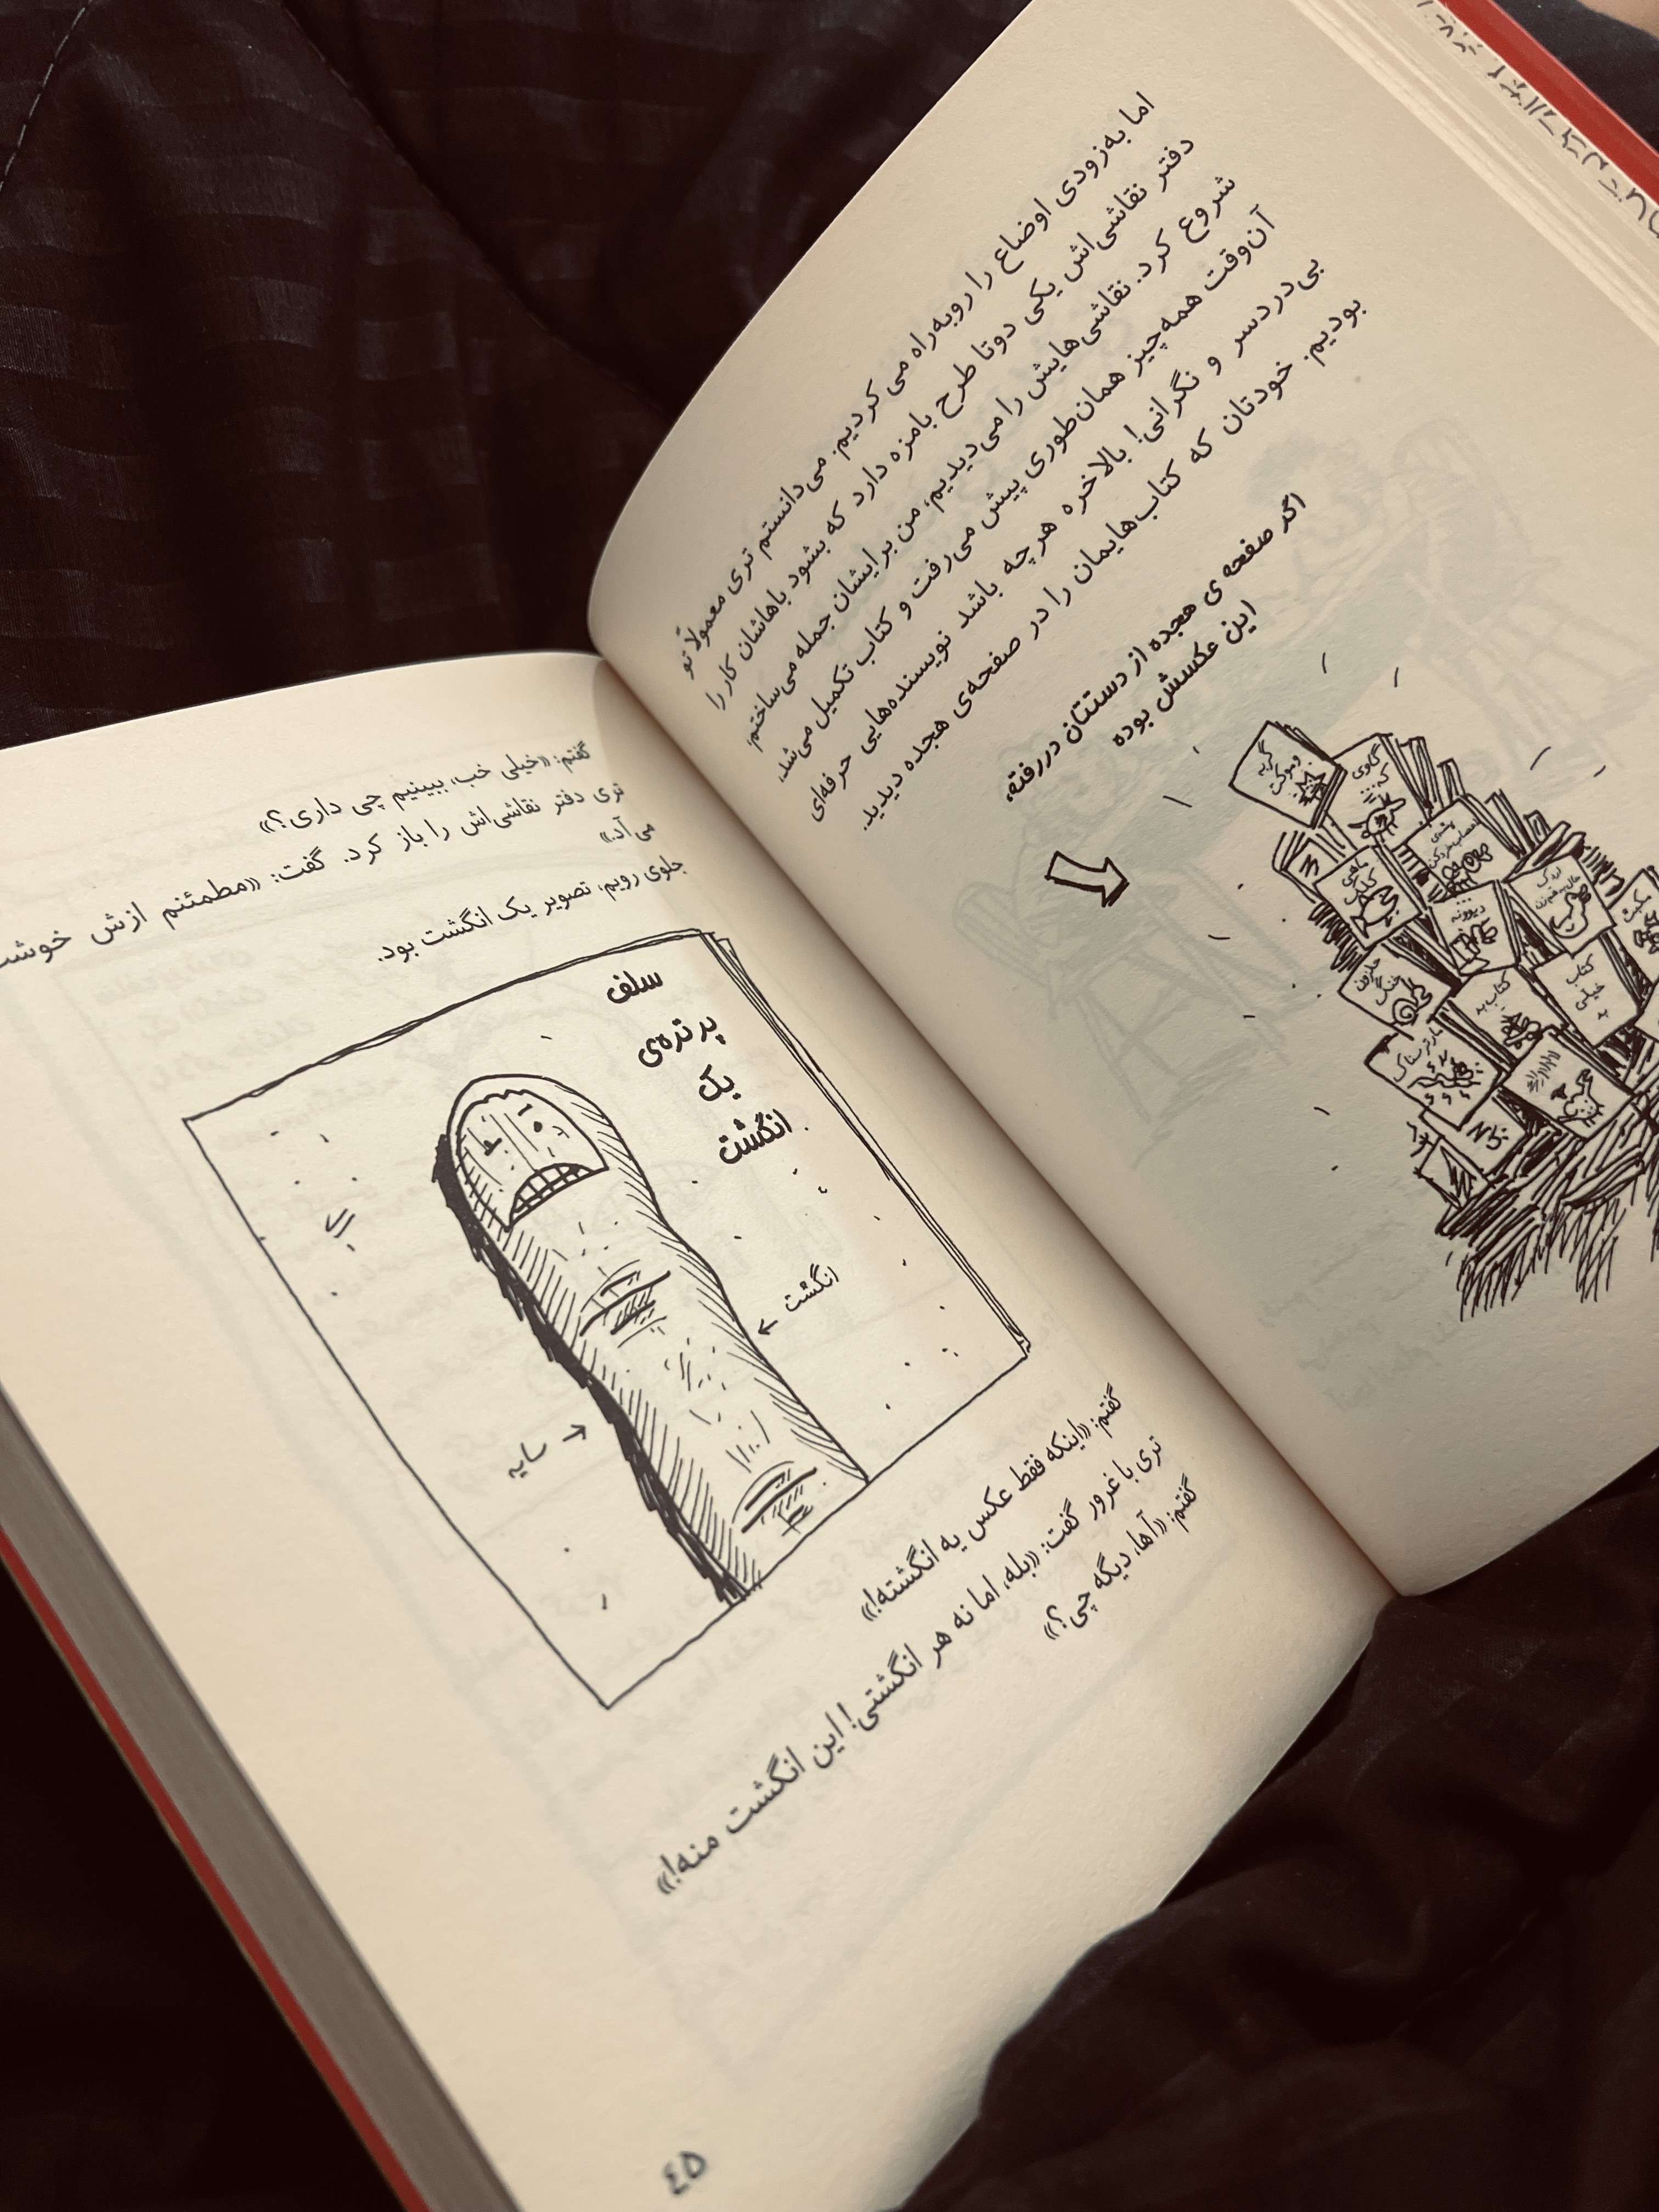 اما به‌زودی اوضاع را روبه‌راه می‌کردیم. می‌دانستم تری معمولاً تو
دفتر نقاشی‌اش یکی دوتا طرح بامزه دارد که بشود باهاشان کار را
شروع کرد. نقاشی‌هایش را می‌دیدیم، من برایشان جمله می‌ساختم،
آن‌وقت همه‌چیز همان‌طوری پیش می‌رفت و کتاب تکمیل می‌شد،
بی‌دردسر و نگرانی! بالاخره هرچه باشد نویسنده‌هایی حرفه‌ای
بودیم. خودتان که کتاب‌هایمان را در صفحه‌ی هجده دیدید.
اگر صفحه‌ی هجده از دستتان دررفته،
این عکسش بوده
گربه
و موکت
گاوی
که...
ماهی
کتاب
دیوونه
اردک
حلزون
خنگ
کتاب بد
کتاب
خیلی
بد
مار ترسناک
گفتم: «خیلی خب، ببینیم چی داری؟»
تری دفتر نقاشی‌اش را باز کرد. گفت: «مطمئنم ازش خوشت
می‌آد.»
جلوی رویم، تصویر یک انگشت بود.
سلف
پرتره‌ی
یک
انگشت
انگشت
سایه
گفتم: «اینکه فقط عکس یه انگشته!»
تری با غرور گفت: «بله، اما نه هر انگشتی! این انگشت منه!»
گفتم: «آها، دیگه چی؟»
۴۵